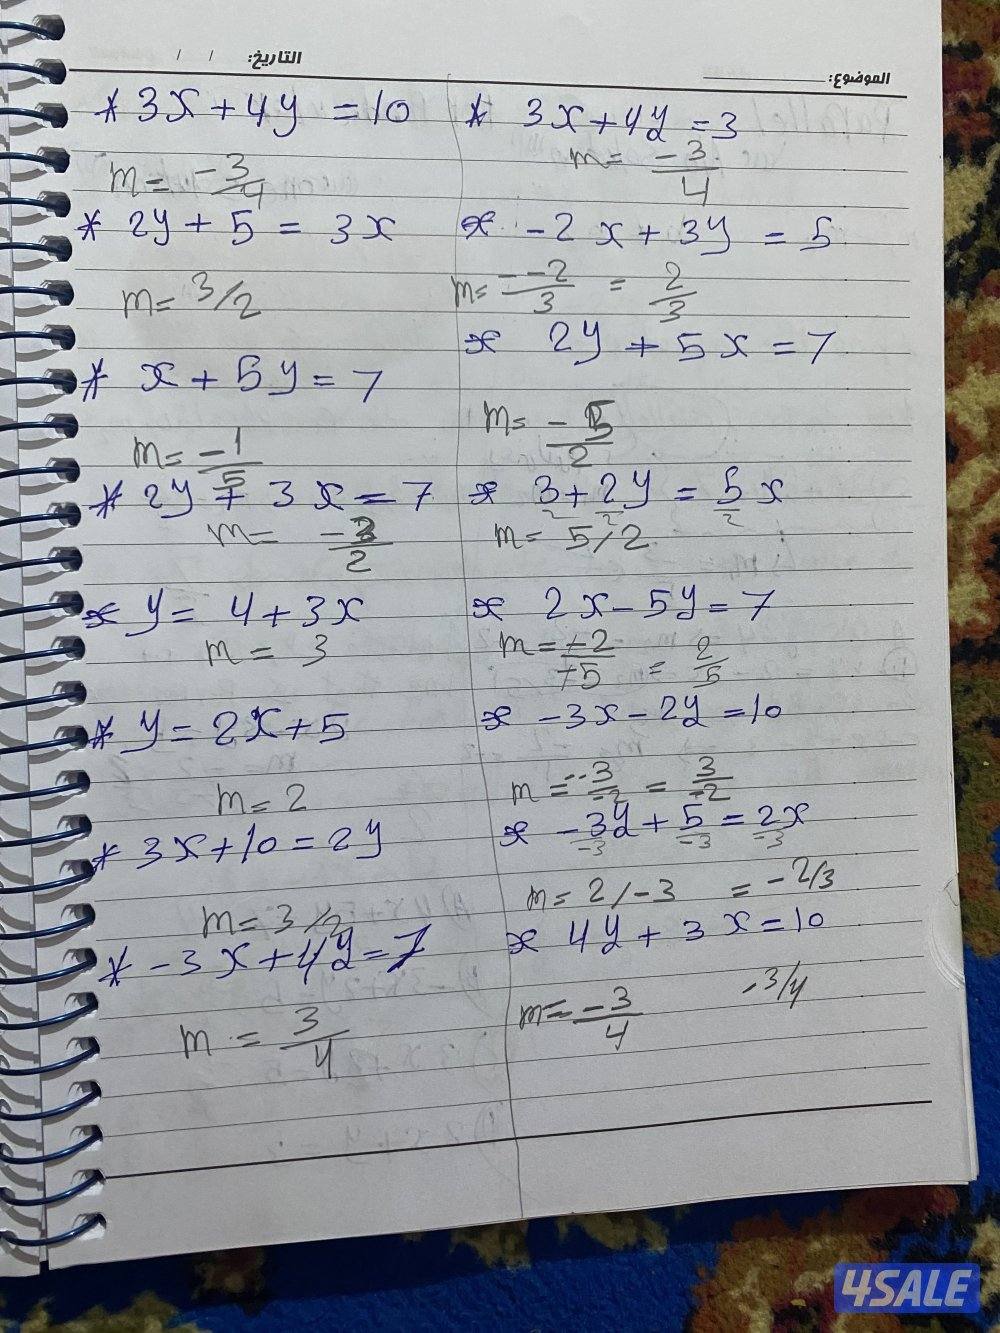 الموضوع:
التاريخ: / /
* 3x + 4y = 10
m = -3/4
* 2y + 5 = 3x
m = 3/2
* x + 5y = 7
m = -1/5
* 2y + 3x = 7
m = -3/2
* y = 4 + 3x
m = 3
* y = 2x + 5
m = 2
* 3x + 10 = 2y
m = 3/2
* -3x + 4y = 7
m = 3/4
* 3x + 4y = 3
m = -3/4
* -2x + 3y = 5
m = - -2/3 = 2/3
* 2y + 5x = 7
m = -5/2
* 3/2 + 2y/2 = 5/2 x
m = 5/2
* 2x - 5y = 7
m = -2/-5 = 2/5
* -3x - 2y = 10
m = --3/-2 = 3/-2
* -3y/-3 + 5/-3 = 2x/-3
m = 2/-3 = -2/3
* 4y + 3x = 10
m = -3/4 -3/4
4SALE